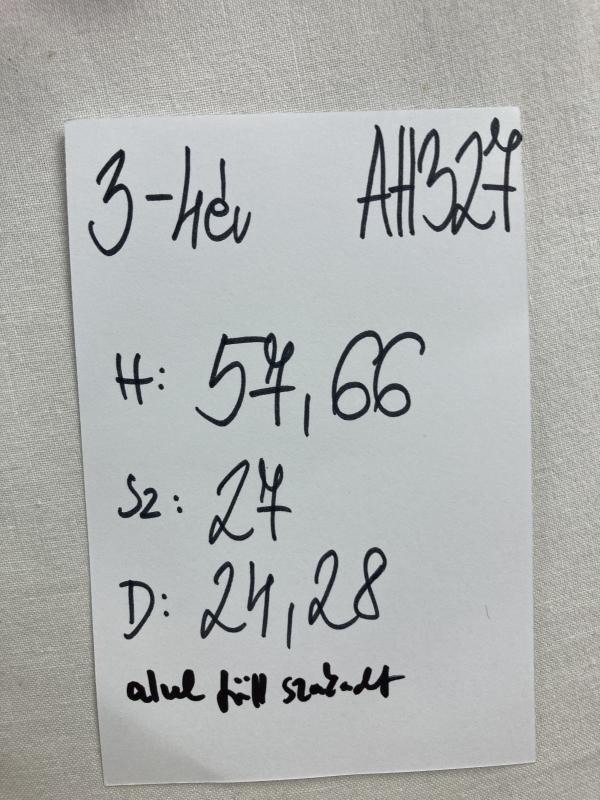 3-4 év AH327
H: 57,66
Sz: 27
D: 24,28
alul szakadt